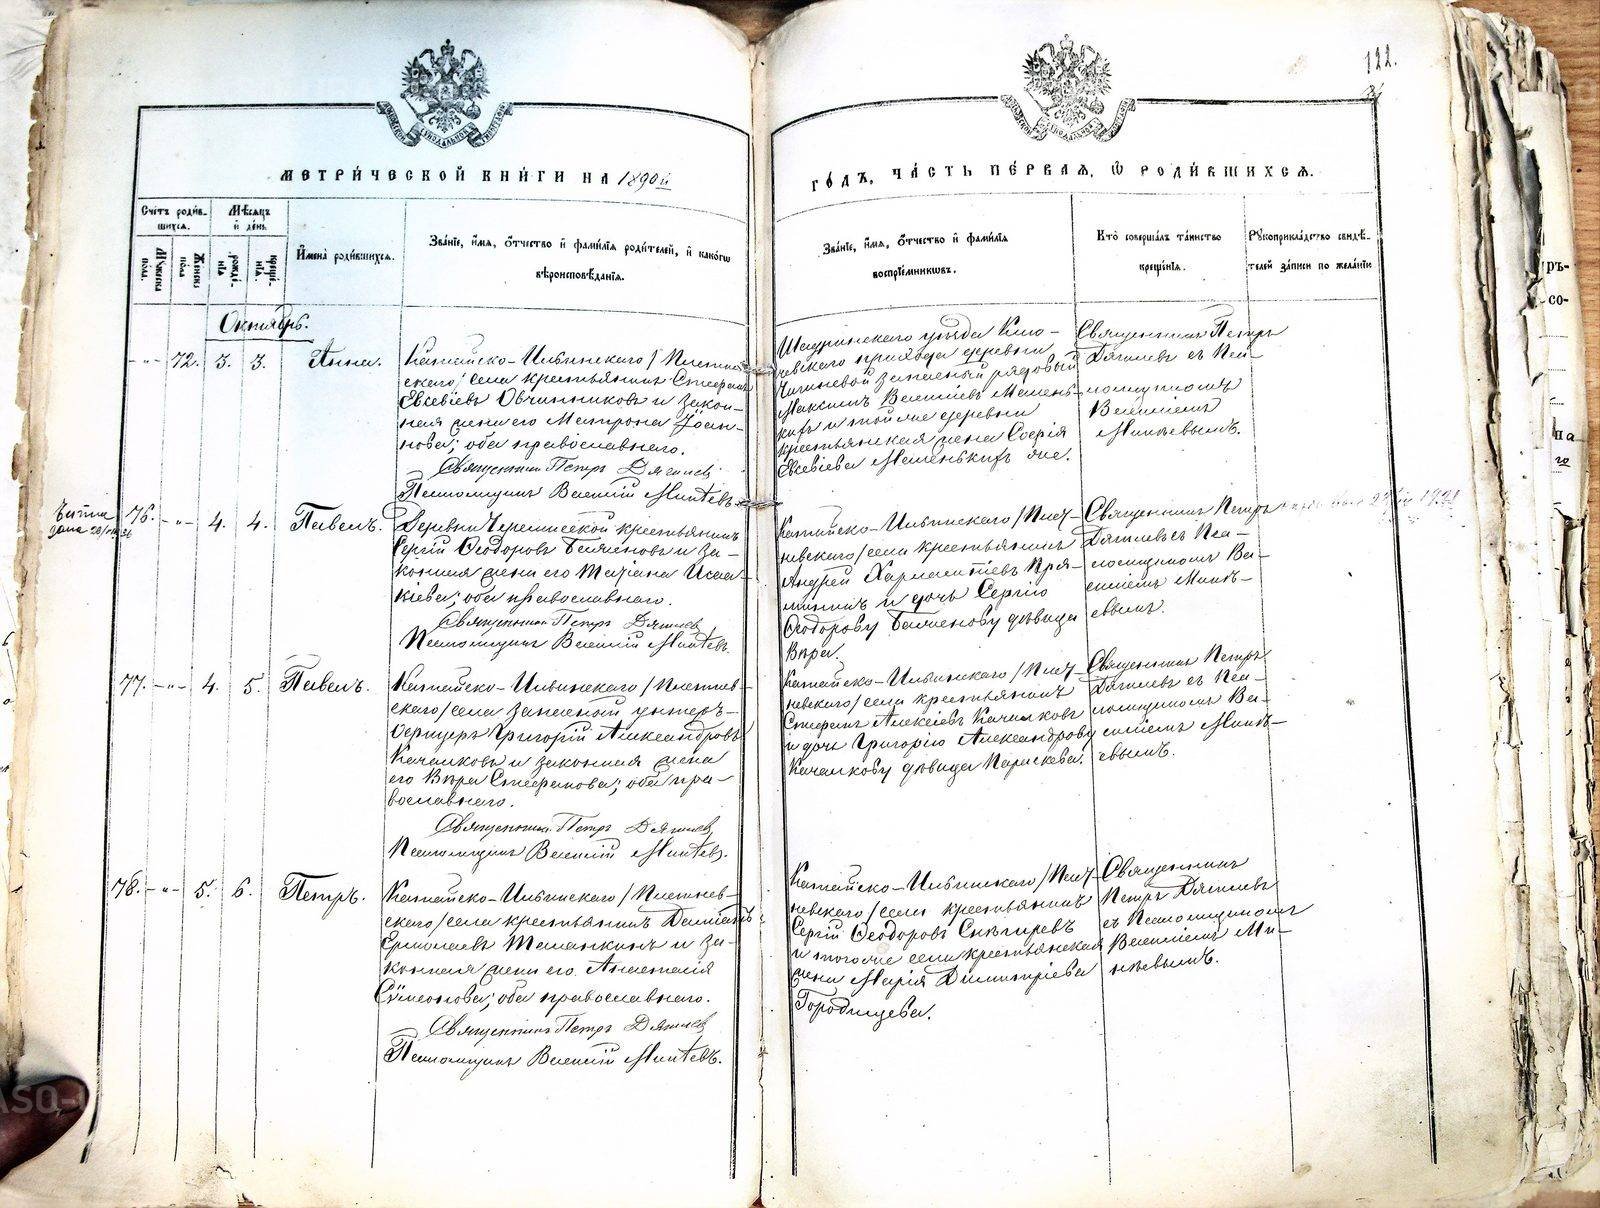 122.
МЕТРИ́ЧЕСКОЙ КНИ́ГИ НА 1890й
ГО́ДЪ, ЧА́СТЬ ПЕ́РВАЯ, Ѿ РОДИ́ВШИХСЯ.
Сче́тъ роди́в-
шихся.
Мѣсяцъ
и҆ де́нь.
И҆мена̀ роди́вшихся.
Зва́нїе, и҆́мя, ѻ҆́тчество и҆ фами́лїя роди́телей, и҆ како́гѡ
вѣроисповѣ́данїя.
Зва́нїе, и҆́мя, ѻ҆́тчество и҆ фами́лїя
воспрїе́мникѡвъ.
Кто̀ соверша́лъ та́инство
креще́нїя.
Рꙋкоприкла́дство свидѣ́-
телей за́писи по жела́нїю
Мꙋжеска
пола.
Женска
пола.
рожде́-
нїя.
креще́-
нїя.
Октябрь.
-"- 72. 3. 3. Анна.
Катайско-Ильинскаго /Плетнев-
скаго/ села крестьянинъ Стефанъ
Евсевіевъ Овчинниковъ и закон-
ная жена его Матрона Іоан-
нова; оба православнаго.
Священникъ Петръ Дягилев
Псаломщикъ Василій Минѣевъ.
Шадринскаго уѣзда
прихода деревни
запасный рядовый
Максимъ Василіевъ Мамень-
кихъ и той же деревни
крестьянская жена Софія
Евсевіева Маменькихъ же.
Священникъ Петръ
Дягилевъ съ Пса-
ломщикомъ
Василіемъ
Минѣевымъ.
76. -"- 4. 4. Павелъ.
Деревни Черемисской крестьянинъ
Сергій Ѳеодоровъ и за-
конная жена его Татіана Исаа-
кіева; оба православнаго.
Священникъ Петръ Дягилев
Псаломщикъ Василій Минѣевъ.
Катайско-Ильинскаго /Плет-
невскаго/ села крестьянинъ
Андрей Харлампіевъ Пря-
и дочь Сергія
Ѳеодорову дѣвица
Вѣра.
Священникъ Петръ
Дягилевъ съ Пса-
ломщикомъ Ва-
силіемъ Минѣ-
евымъ.
77. -"- 4. 5. Павелъ.
Катайско-Ильинскаго /Плетнев-
скаго/ села запасной унтеръ-
офицеръ Григорій Александровъ
Качалковъ и законная жена
его Вѣра Стефанова; оба пра-
вославнаго.
Священникъ Петръ Дягилев
Псаломщикъ Василій Минѣев.
Катайско-Ильинскаго /Плет-
невскаго/ села крестьянинъ
Стефанъ Алексіевъ Качалковъ
и дочь Григорію Александрову
Качалкову дѣвица Параскева.
Священникъ Петръ
Дягилевъ съ Пса-
ломщикомъ Ва-
силіемъ Минѣ-
евымъ.
78. -"- 5. 6. Петръ.
Катайско-Ильинскаго /Плетнев-
скаго/ села крестьянинъ Даміанъ
Ермолаевъ Таланкинъ и за-
конная жена его Анастасія
Сѵмеонова; оба православнаго.
Священникъ Петръ Дягилев
Псаломщикъ Василій Минѣевъ.
Катайско-Ильинскаго /Плет-
невскаго/ села крестьянинъ
Сергій Ѳеодоровъ Снѣгиревъ
и того же села крестьянская
жена Марія Димитріева
Городищева.
Священникъ
Петръ Дягилевъ
съ Псаломщикомъ
Василіемъ Ми-
нѣевымъ.